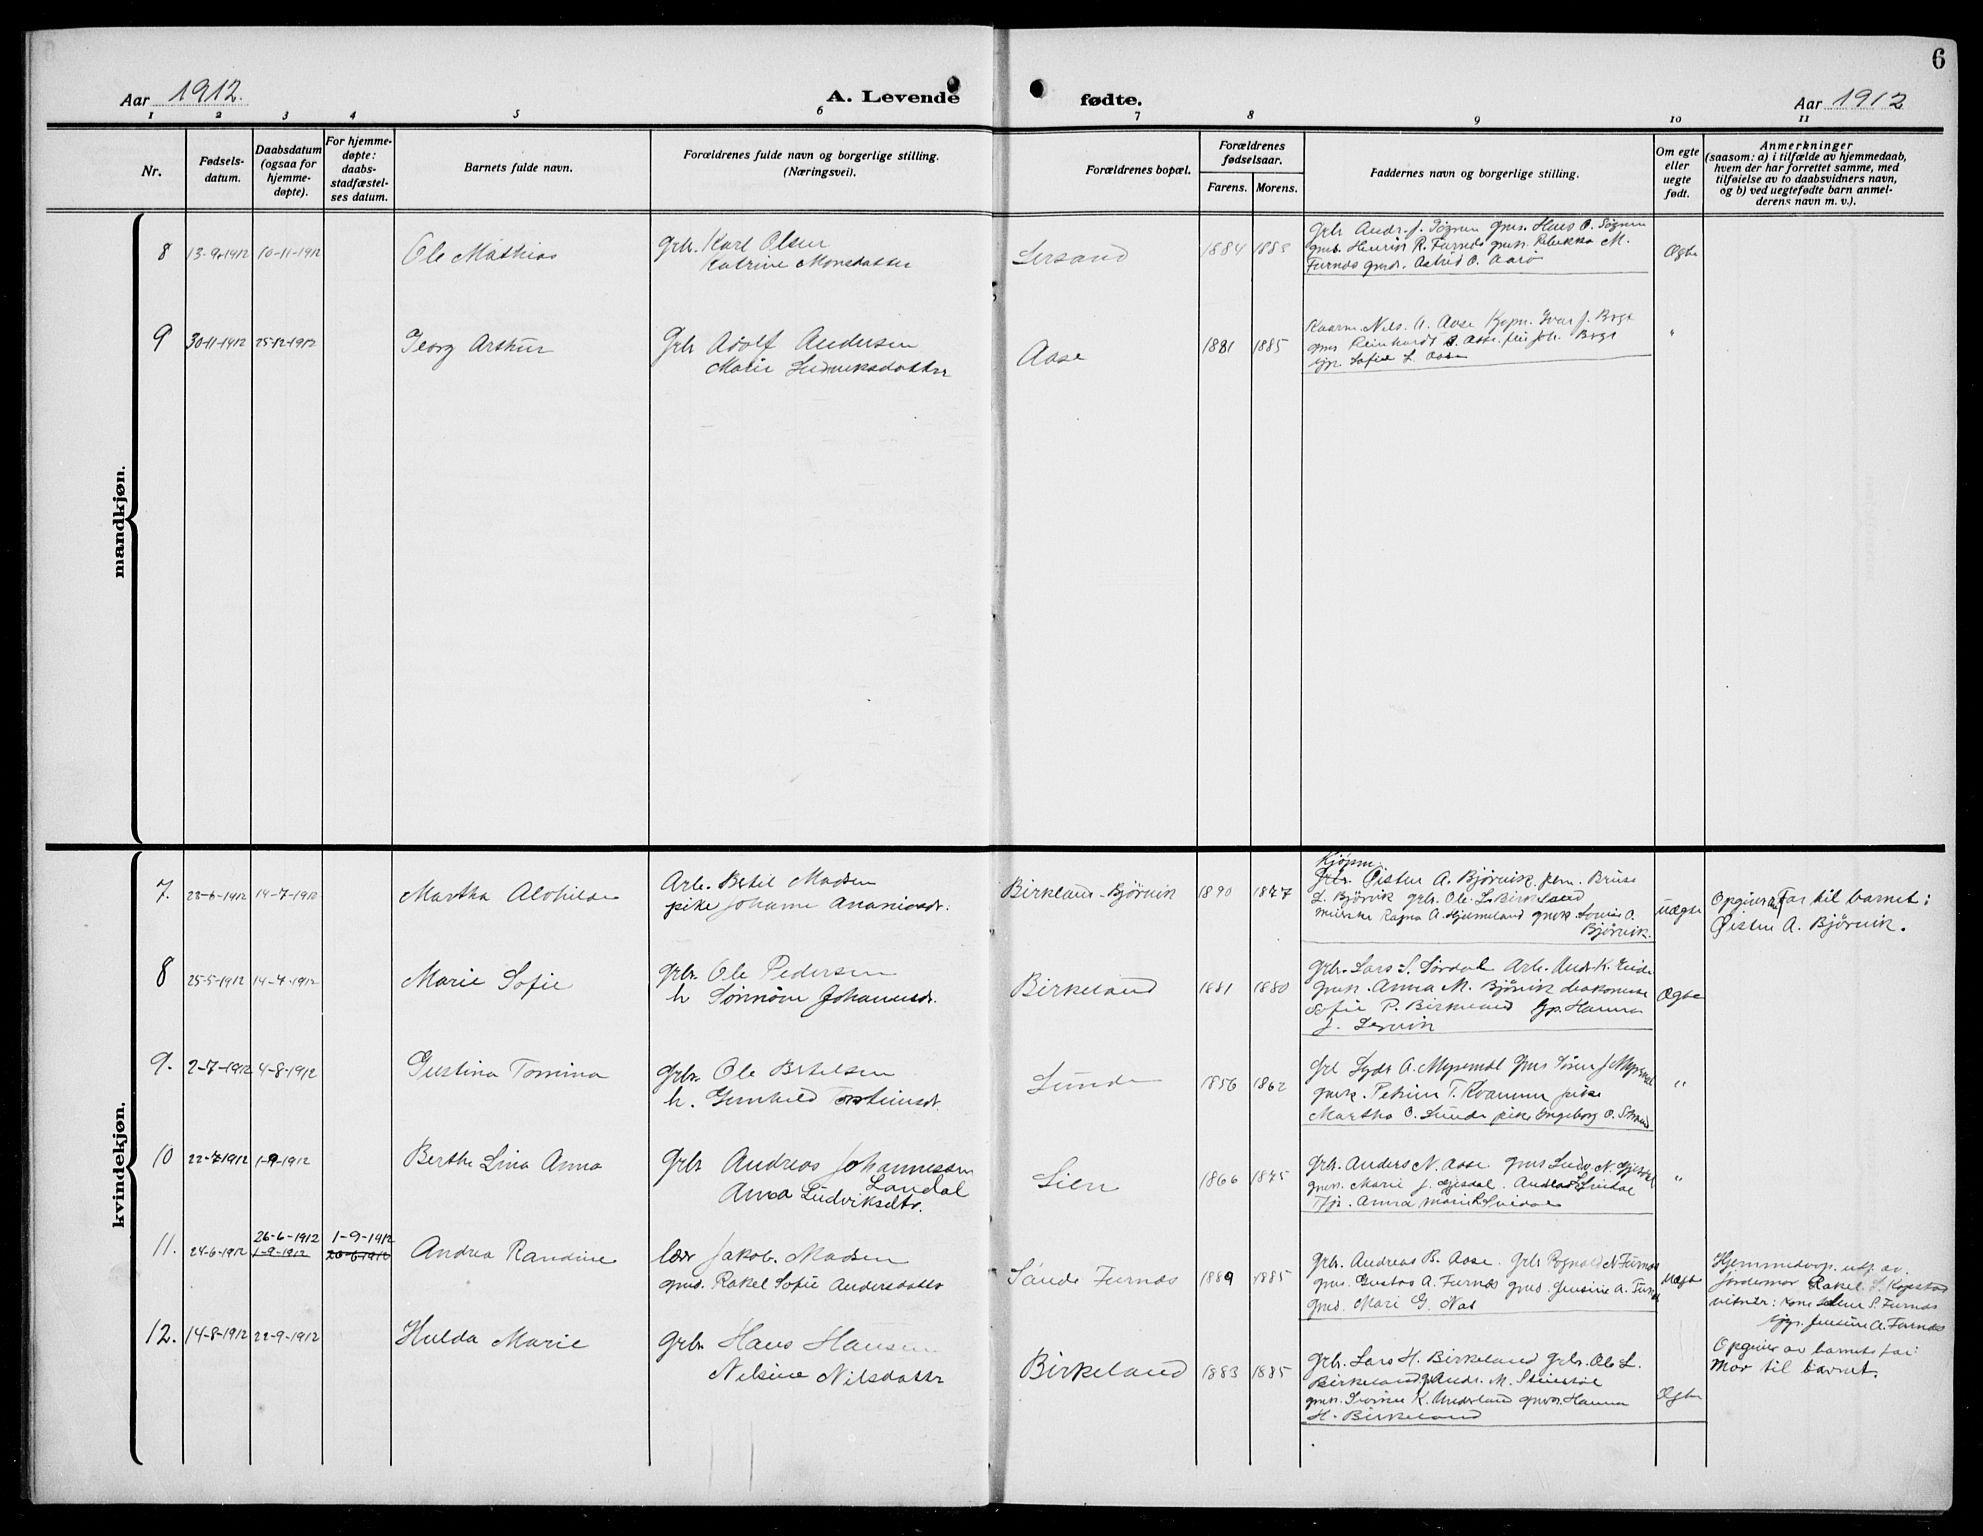 6
Aar 1912.
A. Levende fødte.
Aar 1912
1 2 3 4 5 6 7 8 9 10 11
Nr.
Fødsels-
datum.
Daabsdatum
(ogsaa for
hjemme-
døpte).
For hjemme-
døpte:
daabs-
stadfæstel-
ses datum.
Barnets fulde navn.
Forældrenes fulde navn og borgerlige stilling.
(Næringsvei).
Forældrenes bopæl.
Forældrenes
fødselsaar.
Farens. Morens.
Faddernes navn og borgerlige stilling.
Om egte
eller
uegte
født.
Anmerkninger
(saasom: a) i tilfælde av hjemmedaab,
hvem der har forrettet samme, med
tilføielse av to daabsvidners navn,
og b) ved uegtefødte barn anmel-
derens navn m. v.).
mandkjøn.
8 13-9-1912 10-11-1912
Ole Mathias
Grbr. Karl Olsen
Katrine Monsdatter
Lersand
1884 1883
Grbr Andr. J. Søgnen gms. Hans O. Søgnen
gmb. Henrik R. Furnes gmsk. Rebekka M.
Furnes gmdr. Astrid O. Aarø
Ægte
9 30-11-1912 25-12-1912
Georg Arthur
Grbr Adolf Andersen
Marie Ludviksdatter
Aase
1881 1885
Nils. A. Aase Kjpm. Ivar J. Bogt
gms Reinhardt A. Aase. Joh. Bogt
Sofie L. Aase
"
kvindekjøn.
7. 23-6-1912 14-7-1912
Martha Alvhilde
Arb. Bertil Madsen
pike Johanne Ananiasdt.
Birkeland-Bjørvik
1890 1877
Kjøpm.
Grbr. Øisten A. Bjørvik.
L. Bjørvik grbr. Ole L. Birkeland
Ragna A. Hjelmeland gmsk. Lovise A.
Bjørvik.
uægte
Opgiven far til barnet:
Øisten A. Bjørvik.
8 25-5-1912 14-7-1912
Marie Sofie
Grbr. Ole Pedersen
h Sønnøve Johannesdt.
Birkeland
1881 1880
Grbr. Lars S. Sørdal Arb. Andr. K. Eide
gmsk. Anna M. Bjørvik diakonisse
Sofie P. Birkeland Gp. Hanna
J. Lervik
Ægte
9. 2-7-1912 4-8-1912
Gustina Tomina
Grbr. Ole Bertelsen
h. Gunhild Torsteinsdt.
Sunde
1856 1862
A. Myremel Gms Søren J. Myremel
gmsk. Petrine T. Kvamme pike
Martha O. Sunde pike Engeborg O. Strand
"
10 22-7-1912 1-9-1912
Berthe Lina Anna
Grbr Andreas Johannessen
Landal
Anna Ludviksdtr.
Lien
1866 1875
Grbr. Anders N. Aase gms Ludv. N. Gjesdal
gmsk. Marie J. Gjesdal. Andreas
Tjp. Anna Marie R.
"
11. 24-6-1912
26-6-1912
1-9-1912
1-9-1912
26-6-1912
Andrea Randine
lær Jakob. Madsen
gmd. Rakel Sofie Andersdatter
Sande Furnes
1889 1885
Grbr. Andreas B. Aase. Grbr Rognald N Furnes
gms. Gustav A. Furnes gmd. Jensine A. Furnes
gmd. Mari G. Nes
Uægte
Hjemmedaap. utf. av
jordemor Rakel. S. Kopstad
vitner: kone Lene S. Furnes
Gp. Jensine A. Furnes
12. 14-8-1912 22-9-1912
Hulda Marie
Grbr Hans Hansen
Nelsine Nilsdatter
Birkeland
1883 1885
Grbr. Lars H. Birkeland Grbr. Ole L.
Birkeland Andr. M.
K. Underland gmsk. Hanna
H. Birkeland
Ægte
Opgiver av barnets far:
Mor til barnet.